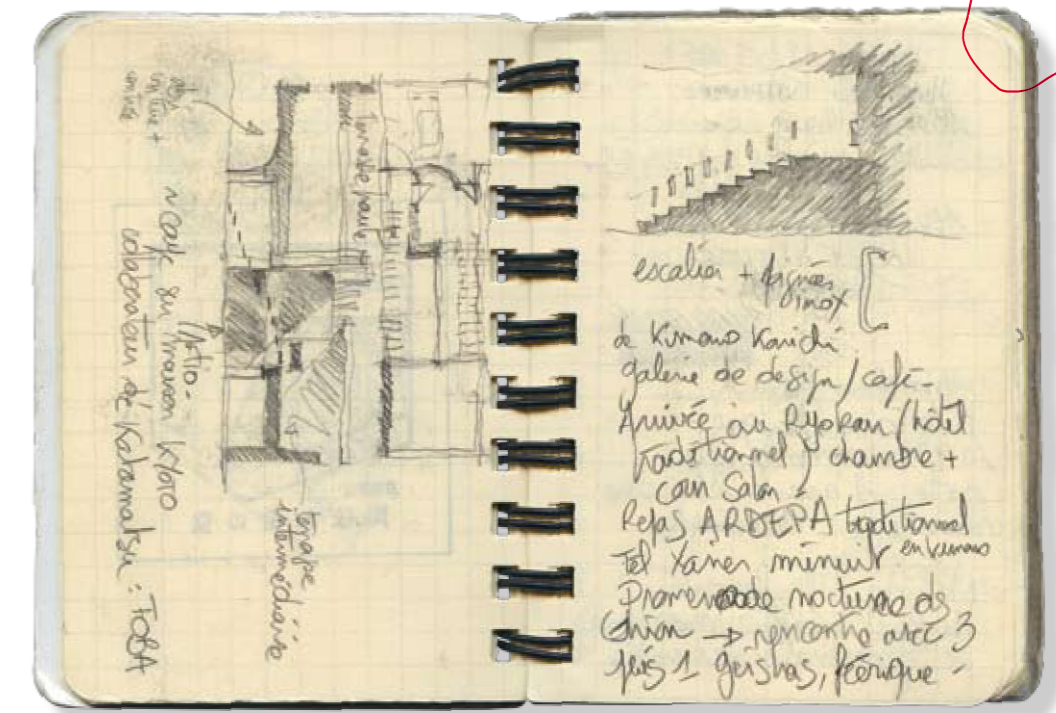 + entrée
Terrasse haute
Patio.
N coupe sur maison Kyoto
collaborateur de Katamatsu : TOBA
terrasse
intermédiaire
escalier + poignées
inox
de Kimono Kanichi
galerie de design / café -
Arrivée au Ryokan (hôtel
traditionnel) chambre +
coin Salon -
Repas ARDEPA traditionnel
en kimono
Tel Xavier minuit
Promenade nocturne ds
Ghion → rencontre avec 3
puis 1 geishas, féérique -